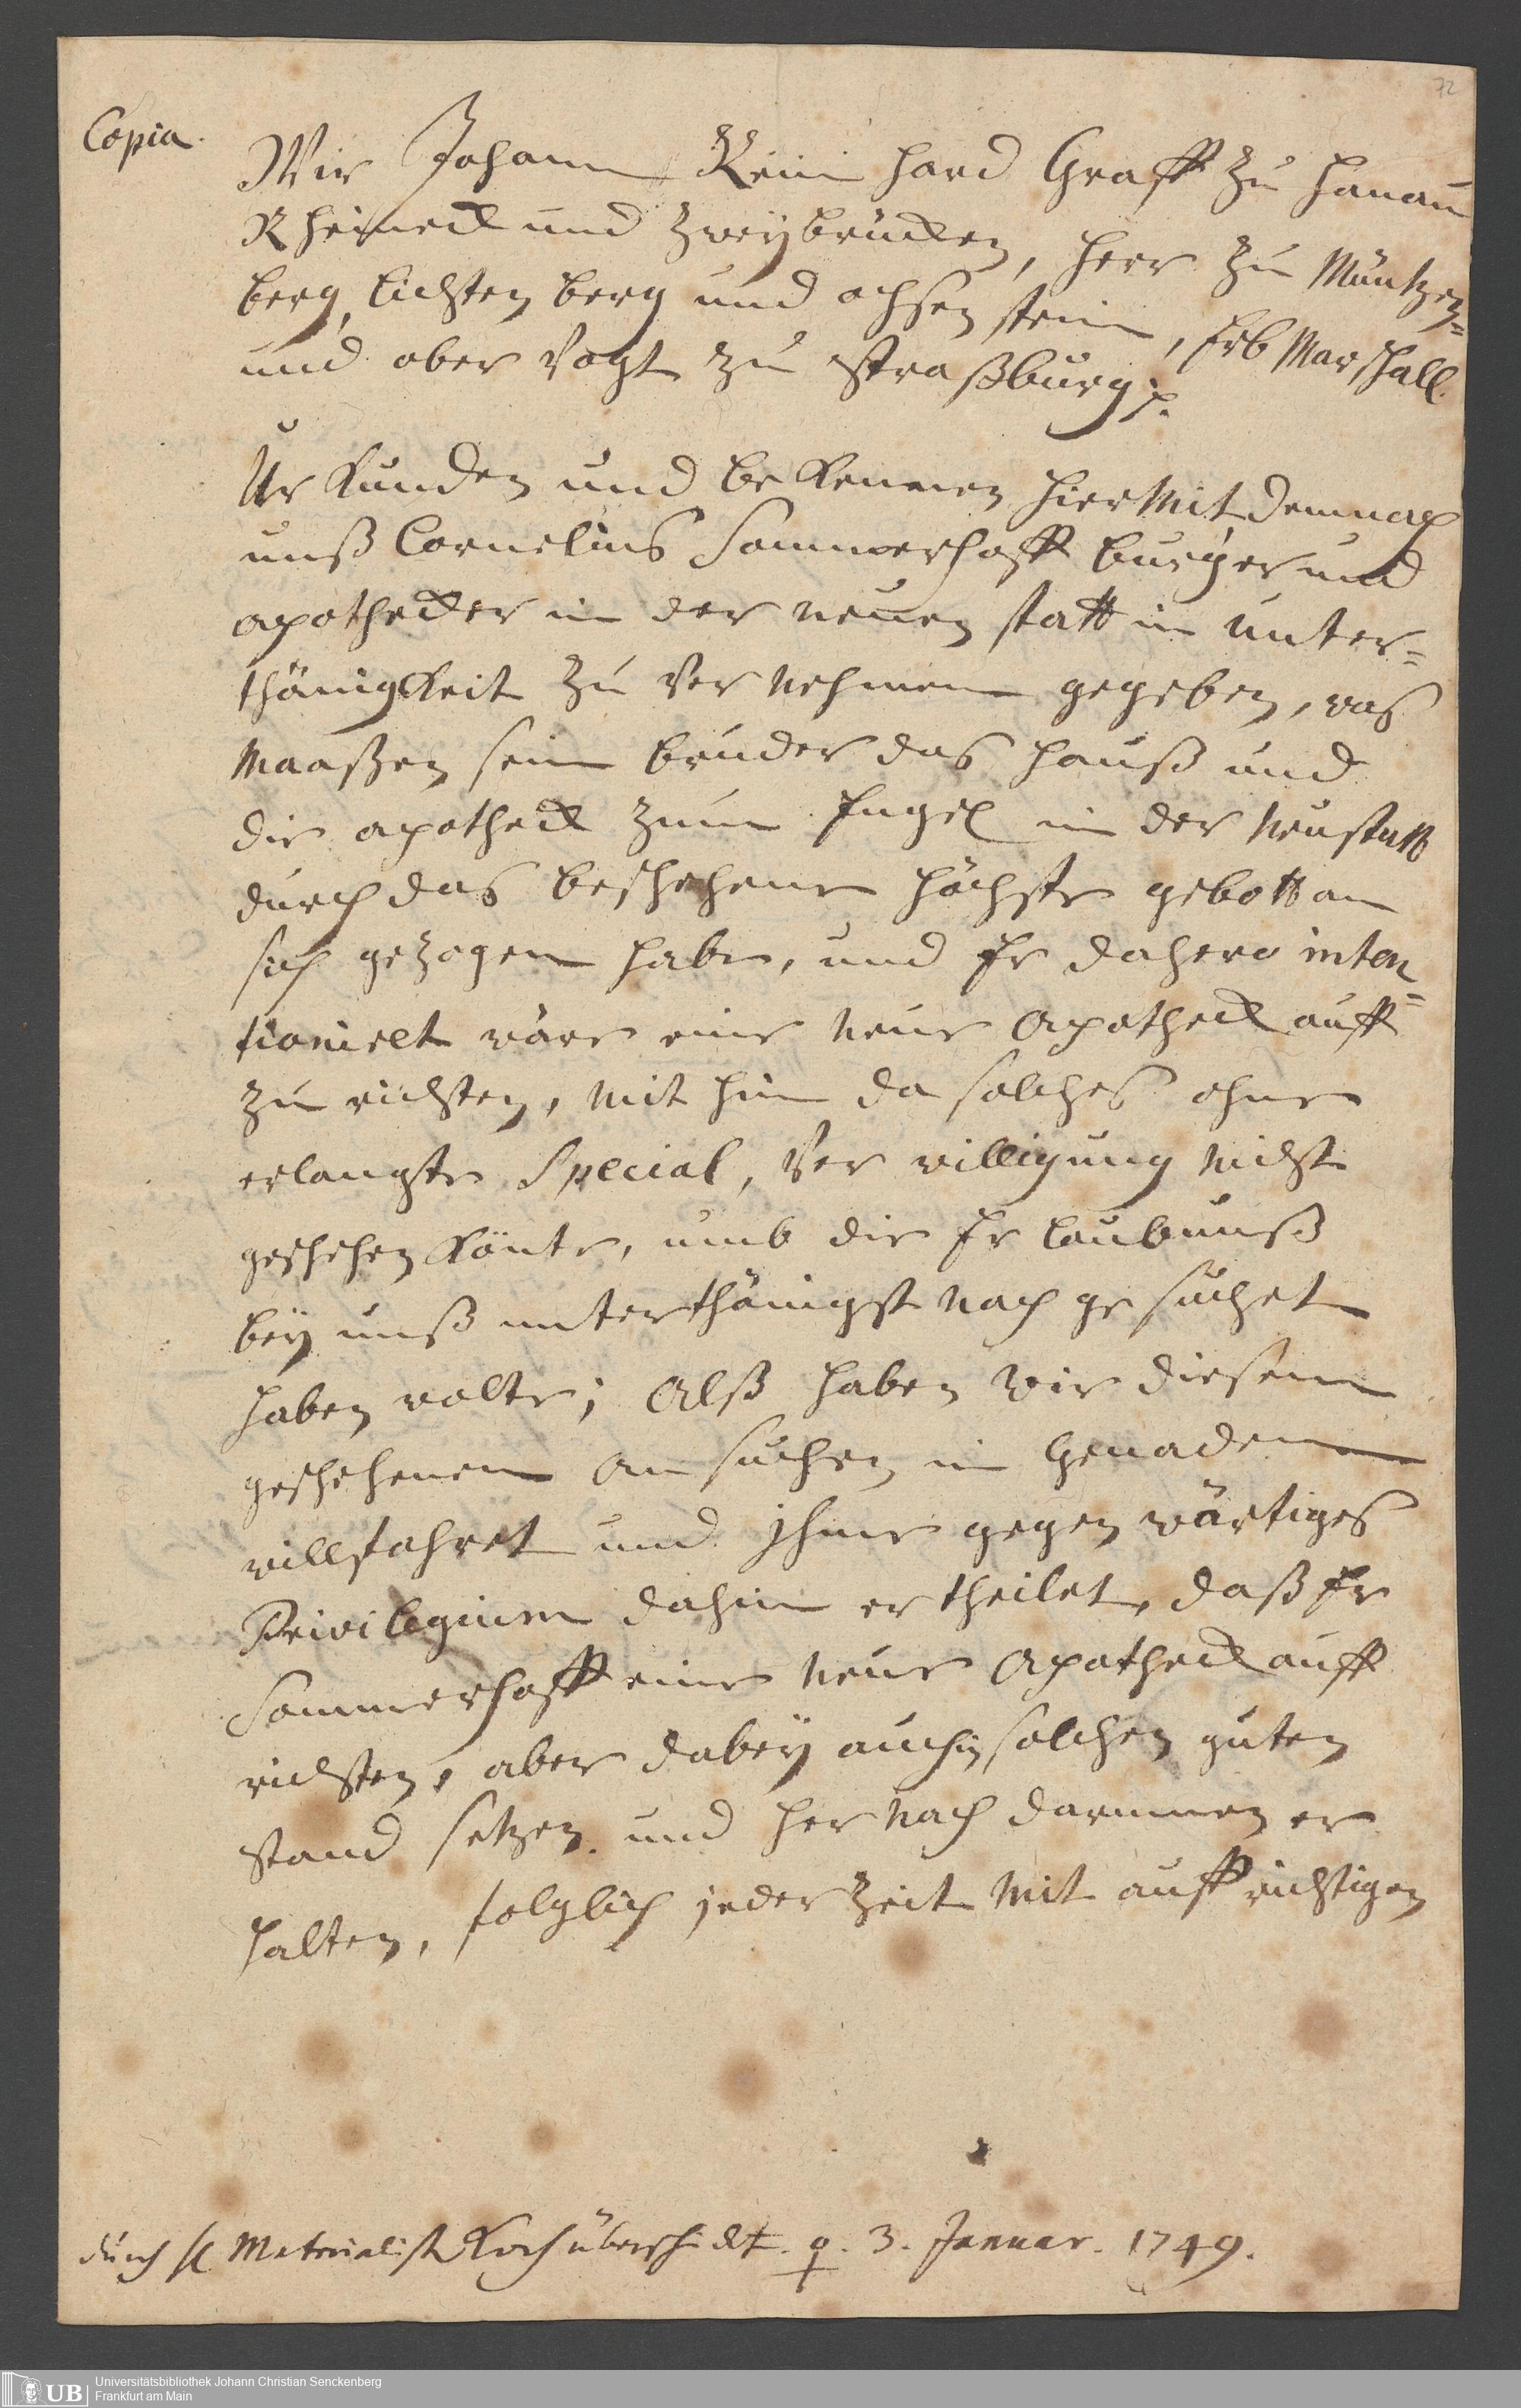 72
Copia.
Wir Johann Reinhard Graff zu Hanau
Rheineck und Zweybrücken, Herr zu Müntzen=
berg, Lichtenberg und ochsenstein, Erb Marschall
und ober Vogt zu Straßburg p.
Urkunden und bekennen hiermit demnach
unß Cornelius Sommerhoff burger und
apothecker in der neuen statt in unter=
thänigkeit zu Vernehmen gegeben, was
maaßen sein bruder das hauß und
die apotheck zum Engel in der Neustatt
durch das beschehene höchste gebott an
sich gezogen habe, und Er dahero inten=
tionirt wäre eine neue Apotheck auff
zu richten, mit hin da solches ohne
erlangte Special, Verwilligung nicht
geschehen könte, umb die Erlaubnuß
bey unß unterthänigst nach gesuchet
haben wolte; Alß haben wir diesem
geschehenem ansuchen in Genaden
willfahret und Ihme gegenwärtiges
Privilegium dahin ertheilet, daß Er
Sommerhoff eine neue Apotheck auff
richten, aber dabey auch in solchen guten
stand setzen und hernach darinnen er
halten, folglich jeder Zeit mit auffrichtigen
durch H Materialist Koch überschickt. 3. Januar. 1749.
UB
Universitätsbibliothek Johann Christian Senckenberg
Frankfurt am Main